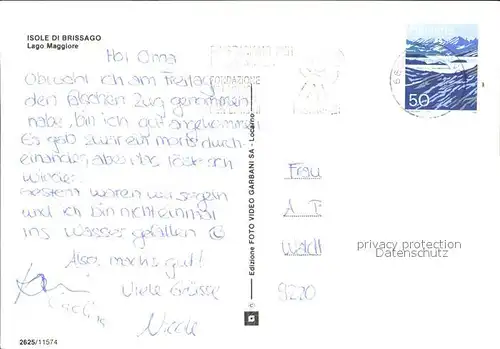 ISOLE DI BRISSAGO
Lago Maggiore
Hoi Oma
Obwohl ich am Freitag
den falschen Zug genommen
habe, bin ich gut angekommen
Es gab zwar ein mords durch-
einander, aber das löste sich
wieder.
Gestern waren wir segeln
und ich bin nicht einmal
ins Wasser gefallen
Also, machs gut!
Viele Grüsse
Nicole
2625/11574
Edizione FOTO VIDEO GARBANI SA - Locarno
FONDAZIONE
50
Frau
A P
9220
privacy protection
Datenschutz